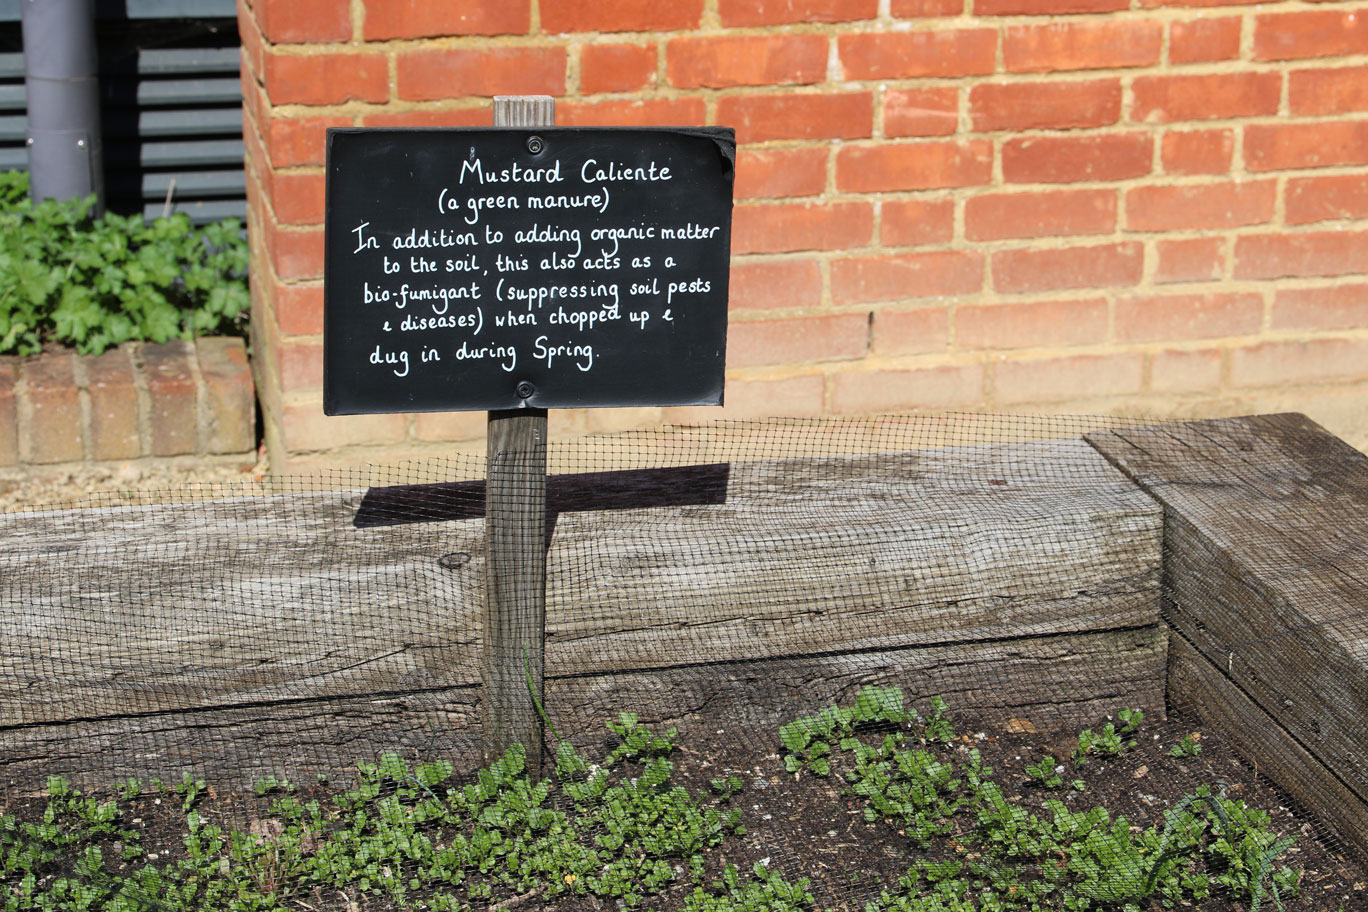 Mustard Caliente
(a green manure)
In addition to adding organic matter
to the soil, this also acts as a
bio-fumigant (suppressing soil pests
& diseases) when chopped up &
dug in during Spring.